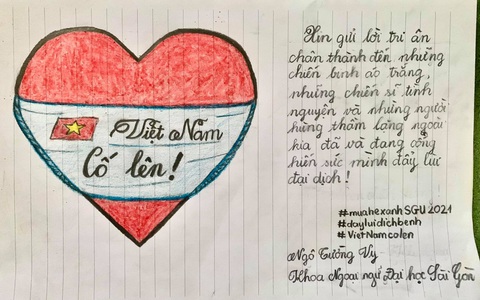 Việt Nam
Cố lên!
Xin gửi lời tri ân
chân thành đến những
chiến binh áo trắng,
những chiến sĩ tình
nguyện và những người
hùng thầm lặng ngoài
kia đã và đang cống
hiến sức mình đẩy lùi
đại dịch!
#muahexanhSGU2021
#dayluidichbenh
#VietNamcolen
Ngô Tường Vy
Khoa Ngoại ngữ, Đại học Sài Gòn